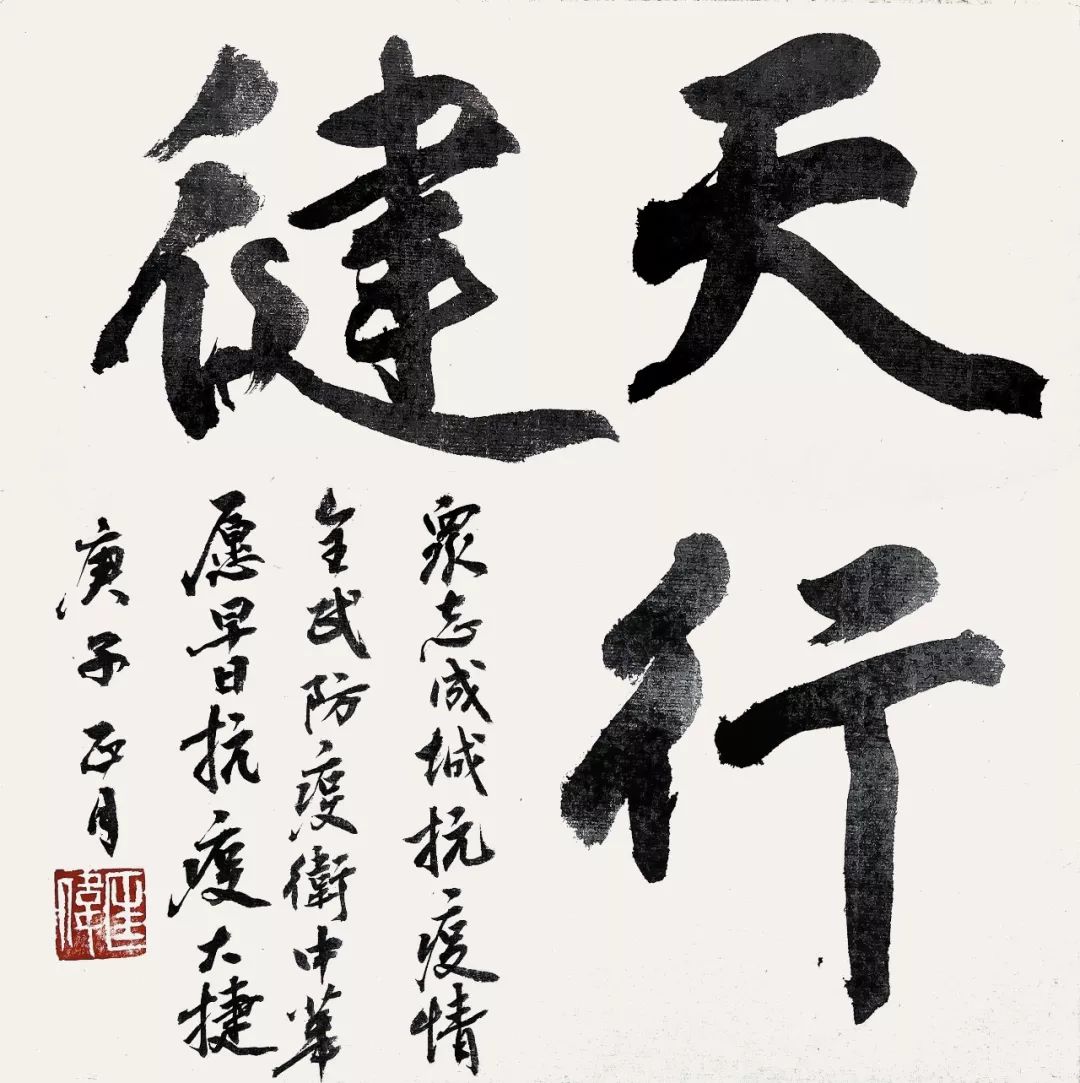 天行
健
眾志成城抗疫情
全民防疫衛中華
愿早日抗疫大捷
庚子正月